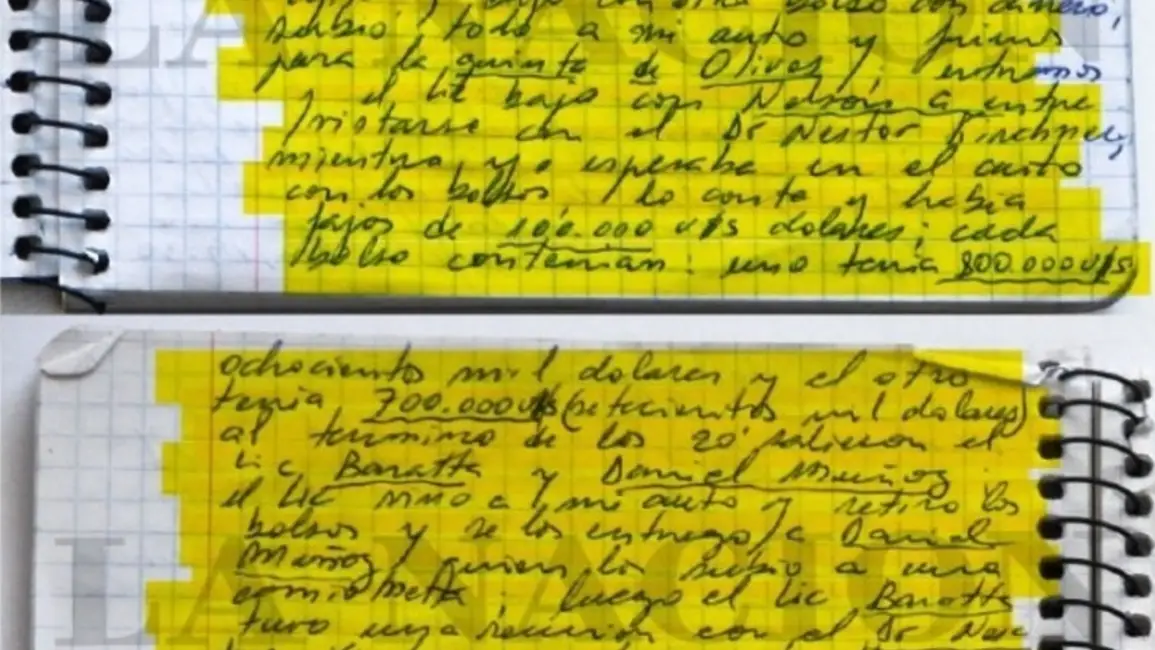 bajo con otro bolso con dinero,
subio todo a mi auto y fuimos
para la quinta de Olivos, entramos
y el lic bajo con Nelson a entre
vistarse con el Dr Nestor Kirchner,
mientras yo esperaba en el auto
con los bolsos, lo conte y habia
fajos de 100.000 u$s dolares; cada
bolso contenian: uno tenia 800.000 u$s
ochocientos mil dolares y el otro
tenia 700.000 u$s (setecientos mil dolares)
al termino de los 20' salieron el
Lic Baratta y Daniel Muñoz
el Lic vino a mi auto y retiro los
bolsos y se los entrego a Daniel
Muñoz, quien los subio a una
camioneta; luego el Lic Baratta
tuvo una reunion con el Dr Nes
LA NACION
LA NACION